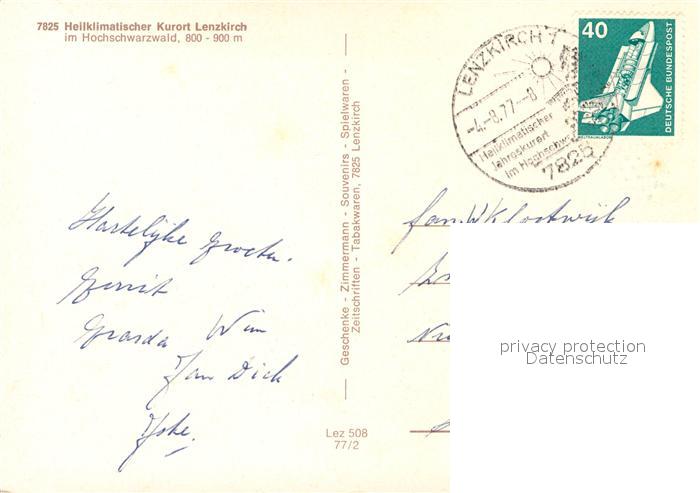 7825 Heilklimatischer Kurort Lenzkirch
im Hochschwarzwald, 800 - 900 m
Geschenke - Zimmermann - Souvenirs - Spielwaren -
Zeitschriften - Tabakwaren, 7825 Lenzkirch
LENZKIRCH 1
-4.-8.77.-8
Heilklimatischer
Jahreskurort
im Hochschw
7825
40
DEUTSCHE BUNDESPOST
WELTRAUMLABOR
Hartelijke Groeten.
Gerrit
Wim
Jan Dick
fam. W
privacy protection
Datenschutz
Lez 508
77/2